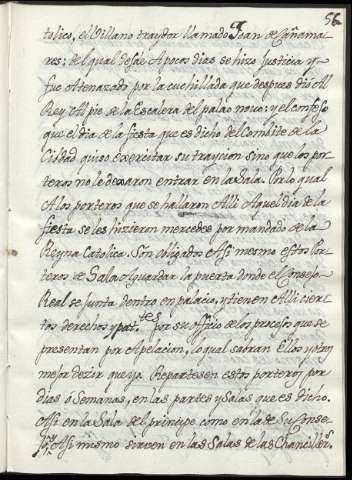 56
tolico, el Villano traydor llamado Joan de Cañama
res; del qual desde A pocos dias se hizo Justicia y
fue Atenazado por la cuchillada que despues dió Al
Rey Al pie de la Escalera del palao novo: y el confeso
que el dia de la fiesta que es dicho del Combite de la
Cibdad quiso exercitar su trayçion sino que los por
teros no le dexaron entrar en la sala. Por lo qual
A los porteros que se hallaron Alli Aquel dia de la
fiesta se les hizieron mercedes por mandado de la
Reyna Catolica. Son obligados Assi mesmo estos Por
teros de Sala Aguardar la puerta donde el Consejo
Real se Junta dentro en palacio, y tienen Alli cier
tos derechos por su officio de los procesos que se
presentan por Apelacion, lo qual sabran Ellos y otros
mejor dezir que yo. Repartesen estos porteros por
dias o Semanas, en las partes y Salas que es dicho.
Assi en la Sala del principe como en la de Su Conse
jo. Assi mismo sirven en las Salas de las Chancillers